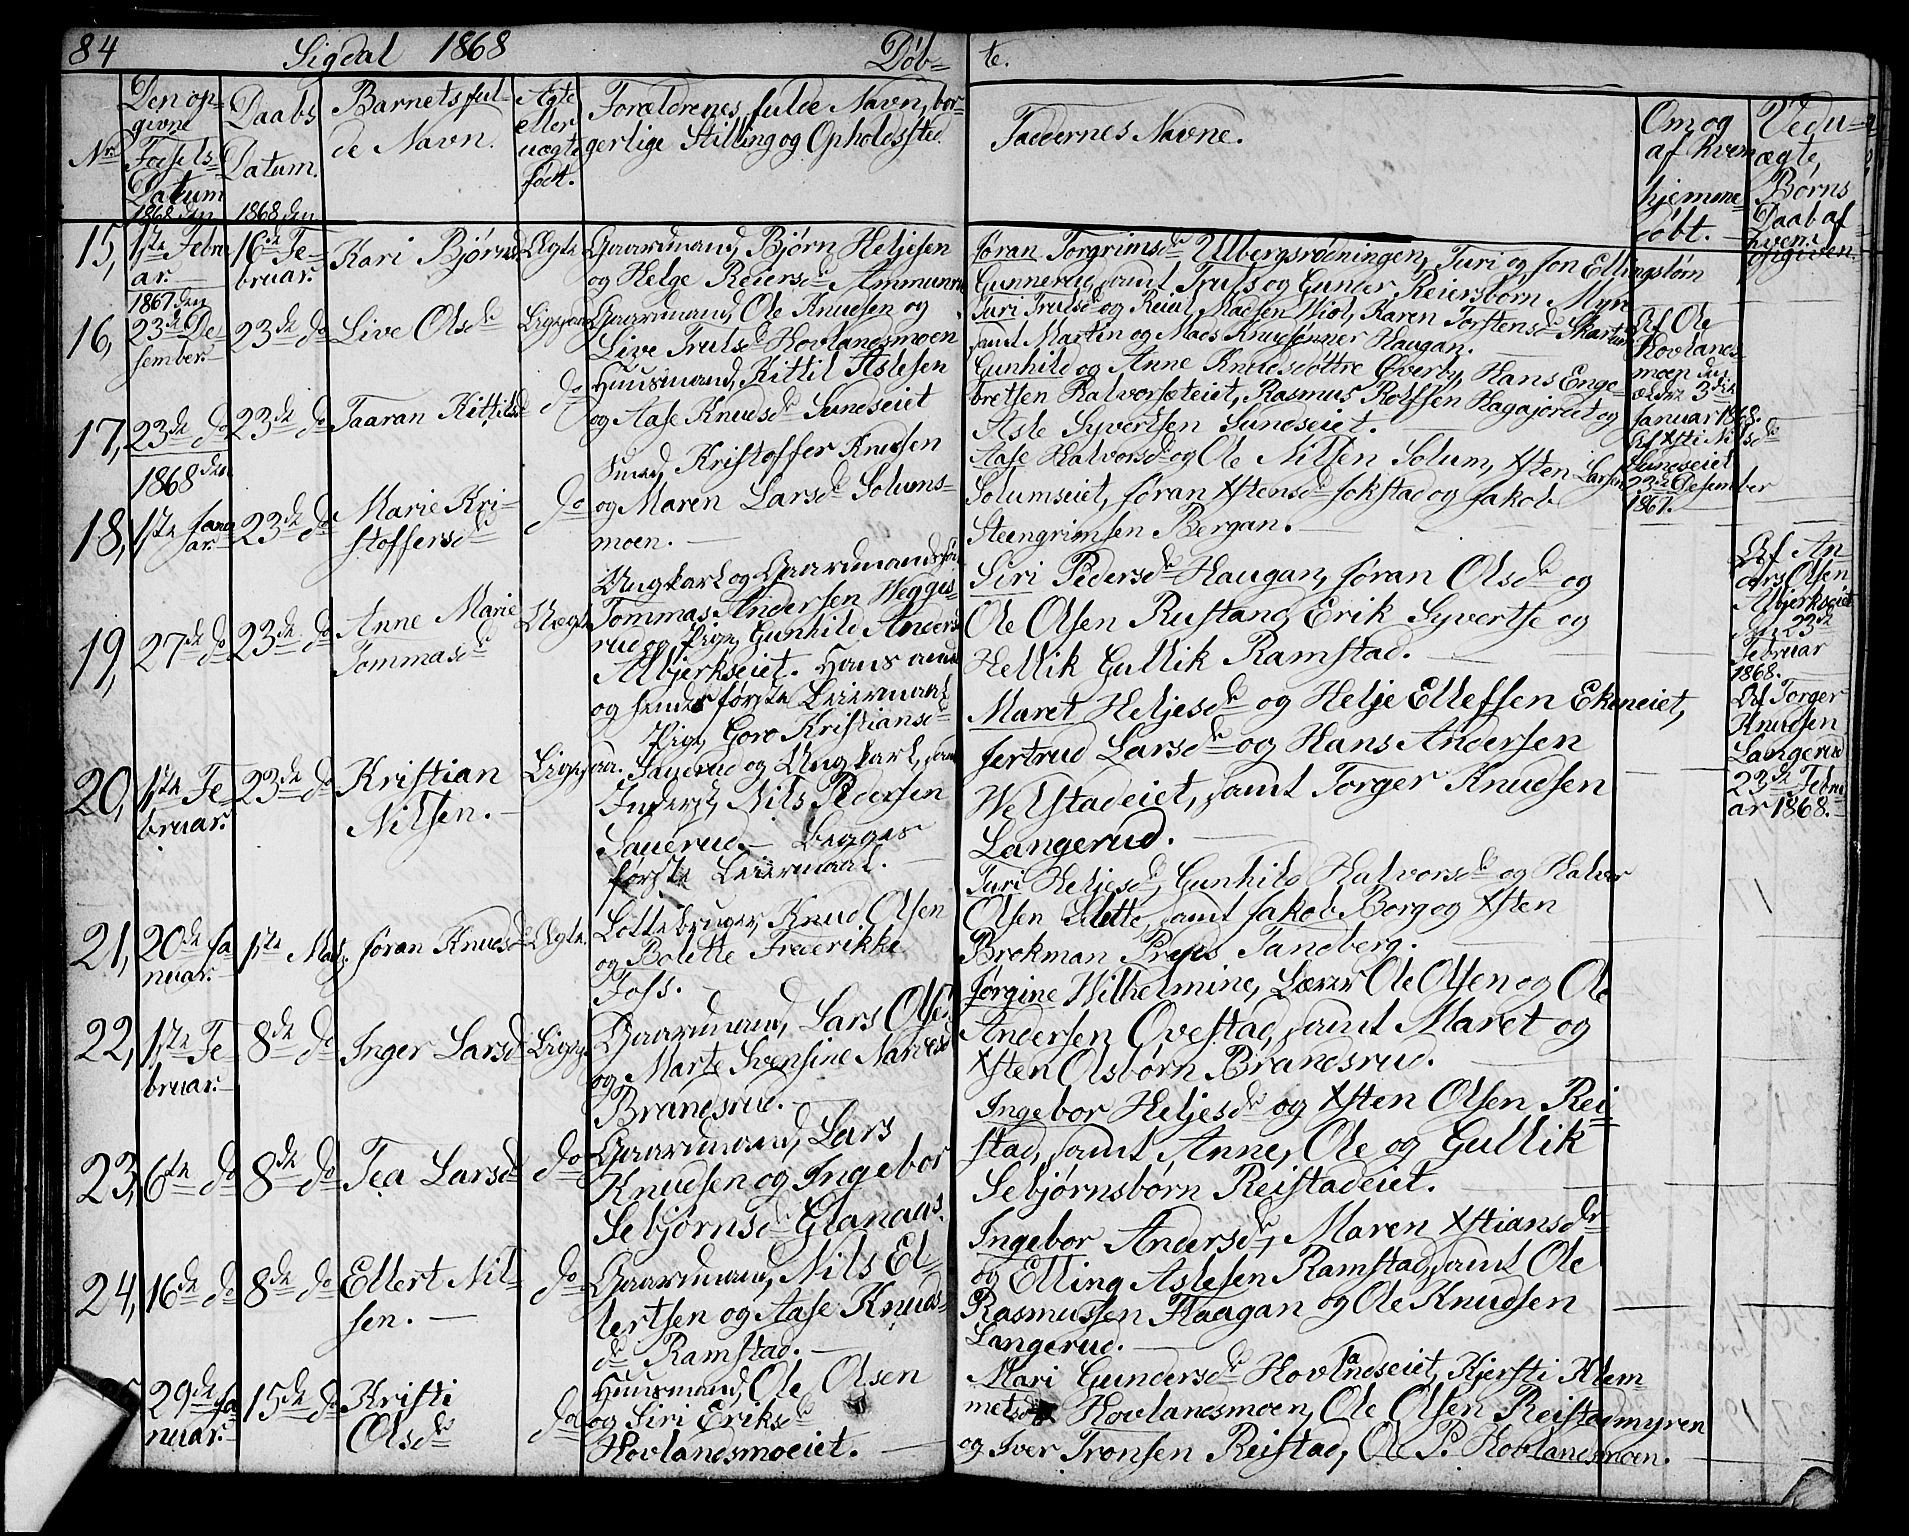 84 Sigdal 1868 Døb= te.
Nr. Den op-
givne
Fødsels-
Datum
1868 den
Daabs
Datum.
1868 den
Barnets ful-
de Navn.
Ægte
eller
uægte
født.
Forældrenes fulde Navn, bor-
gerlige Stilling og Opholdssted.
Faddernes Navne.
Om og
af hvem
hjemme-
døbt.
Ved u-
ægte,
Børns
Daab af
hvem
opgiven.
15, 1ste Febru
ar.
16de Fe-
bruar.
Kari Bjørnsd
Ægte
Gaardmand, Bjørn Heljesen
og Helge Reiersdr Ammunru
Jøran Torgrimsdr Ulbergsrødningen, Turi og Jon Ellingsbørn
Gunnerud, samt Truls og Gunder Reiersbørn Myre
1867 den
16, 23de De-
sember.
23de do
Live Olsdr
Ligesaa
Gaardmand, Ole Knudsen og
Live Trulsdr Hovlandsmoen
Turi Trulsdr og Reial Madsen Wiol, Karen Torstensdr Skartum
samt Martin og Mads Knudsønner Haugan.
Af Ole
Hovlands-
moen den
ældre 3die
Januar 1868.
17, 23de do
23de do
Taaran Kittilsd
do
Huusmand, Kittil Aslesen
og Aase Knudsdr Sundseiet
Gunhild og Anne Knudsdøttre Øverby, Hans Enge-
bretsen Halvorsæteiet, Rasmus Rolfsen Hagajordet og
Asle Syvertsen Sundseiet.
Af Xsti Nilsdr
Sundseiet
23de Desember
1867.
1868 den
18, 1ste Janu
ar.
23de do
Marie Kri-
stoffersdr
do
Smed, Kristoffer Knudsen
og Maren Larsdr Solums-
moen.
Aase Halvorsdr og Ole Nilsen Solum, Xsten Larsen
Solumseiet, Jøran Xstensdr Jokstad og Jakob
Steengrimsen Bergan.
19, 27de do
23de do
Anne Marie
Tommasdr
Uægte
Ungkarl og Gaardmandssøn
Tommas Andersen Weggis-
rud og Pige, Gunhild Anders
Albjerkseiet. Hans andet
og hendes første Leiermaal
Siri Pedersdr Haugan, Jøran Olsdr og
Ole Olsen Rustand, Erik Syvertse og
Hellik Gullik Ramstad.
Af An-
ders Olsen
Albjerkseiet
den 23de
Februar
1868.
20, 1ste Fe-
bruar.
23de do
Kristian
Nilsen.
Ligesaa.
Pige, Goro Kristiansdr
Sauerud og Ungkarl, samt
Inderst, Nils Pedersen
Sauerud. Begges
første Leiermaal.
Maret Heljesdr og Helje Ellefsen Ekeneiet,
Jertrud Larsdr og Hans Andersen
Welstadeiet, samt Torger Knudsen
Langerud.
Af Torger
Knudsen
Langerud
23de Febru
ar 1868.
21, 20de Ja-
nuar.
1ste Mats
Jøran Knudsd
Ægte.
Lottebruger, Knud Olsen
og Bolette Frederikke
Foss.
Turi Heljesdr, Gunhild Halvorsdr og Halvor
Olsen Slette, samt Jakob Borg og Xsten
Brekman Prens Tandberg.
22, 1ste Fe-
bruar.
8de do
Inger Larsd
Ligesaa
Gaardmand, Lars Olsen
og Marte Svensine Narvesd
Brandsrud.
Jørgine Wilhelmine, Lærer Ole Olsen og Ole
Andersen Ovestad, samt Maret og
Xsten Olsbørn Brandsrud.
23, 6te do
8de do
Tea Larsd
do
Gaardmand, Lars
Knudsen og Ingebor
Sebjørnsdr Glanaas.
Ingebor Heljesdr og Xsten Olsen Rei-
stad, samt Anne, Ole og Gullik
Sebjørnsbørn Reistadeiet.
24, 16de do
8de do
Ellert Nil-
sen.
do
Gaardmand, Nils El-
lertsen og Aase Knuds-
dr Ramstad.
Ingebor Andersdr, Maren Xstiansdr
og Elling Aslesen Ramstad, samt Ole
Rasmussen Haagan og Ole Knudsen
Langerud.
29de Ja-
nuar.
15de do
Kristi
Olsdr
do
Huusmand, Ole Olsen
og Siri Eriksdr
Hovlandsmoeiet.
Mari Gundersdr Hovlandseiet, Kjersti Klem-
metsdr Hovlandsmoen, Ole Olsen Reistadmyren
og Iver Tronsen Reistad, Ole P. Hovlandsmoen.